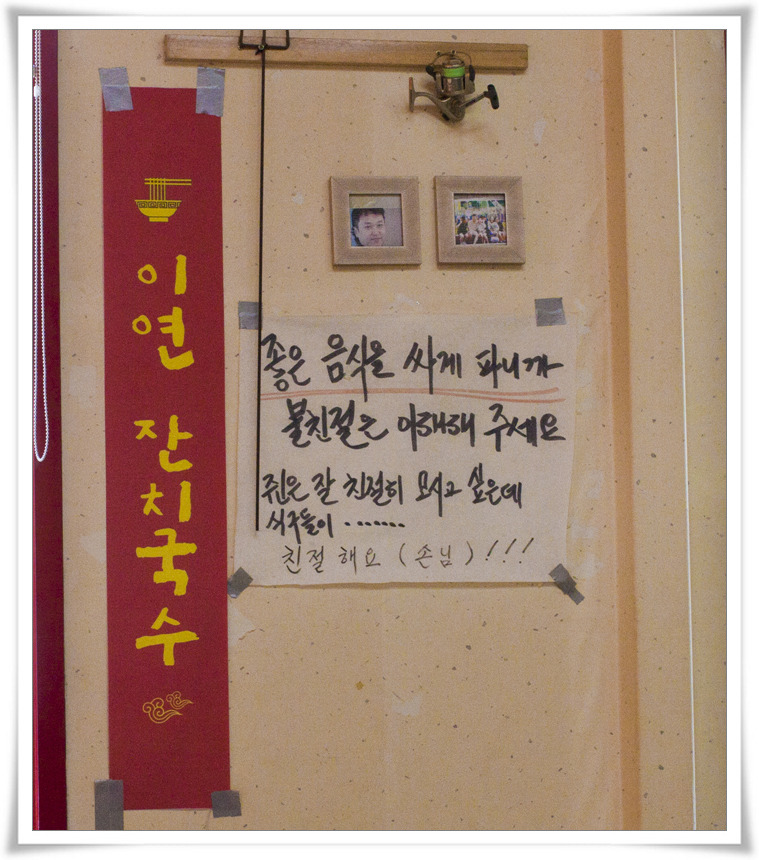 이연 잔치국수
좋은 음식을 싸게 파니까
불친절은 이해해 주세요
쥔은 잘 친절히 모시고 싶은데
식구들이 .......
친절해요 (손님) !!!